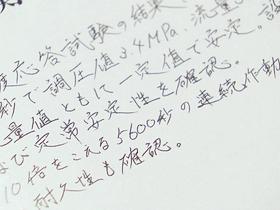 度応答試験の結果
秒で調圧値3.4MPa、流量
量値ともに一定値で安定。
よび定常安定性を確認。
10倍をこえる5600秒の連続作動
耐久性も確認。